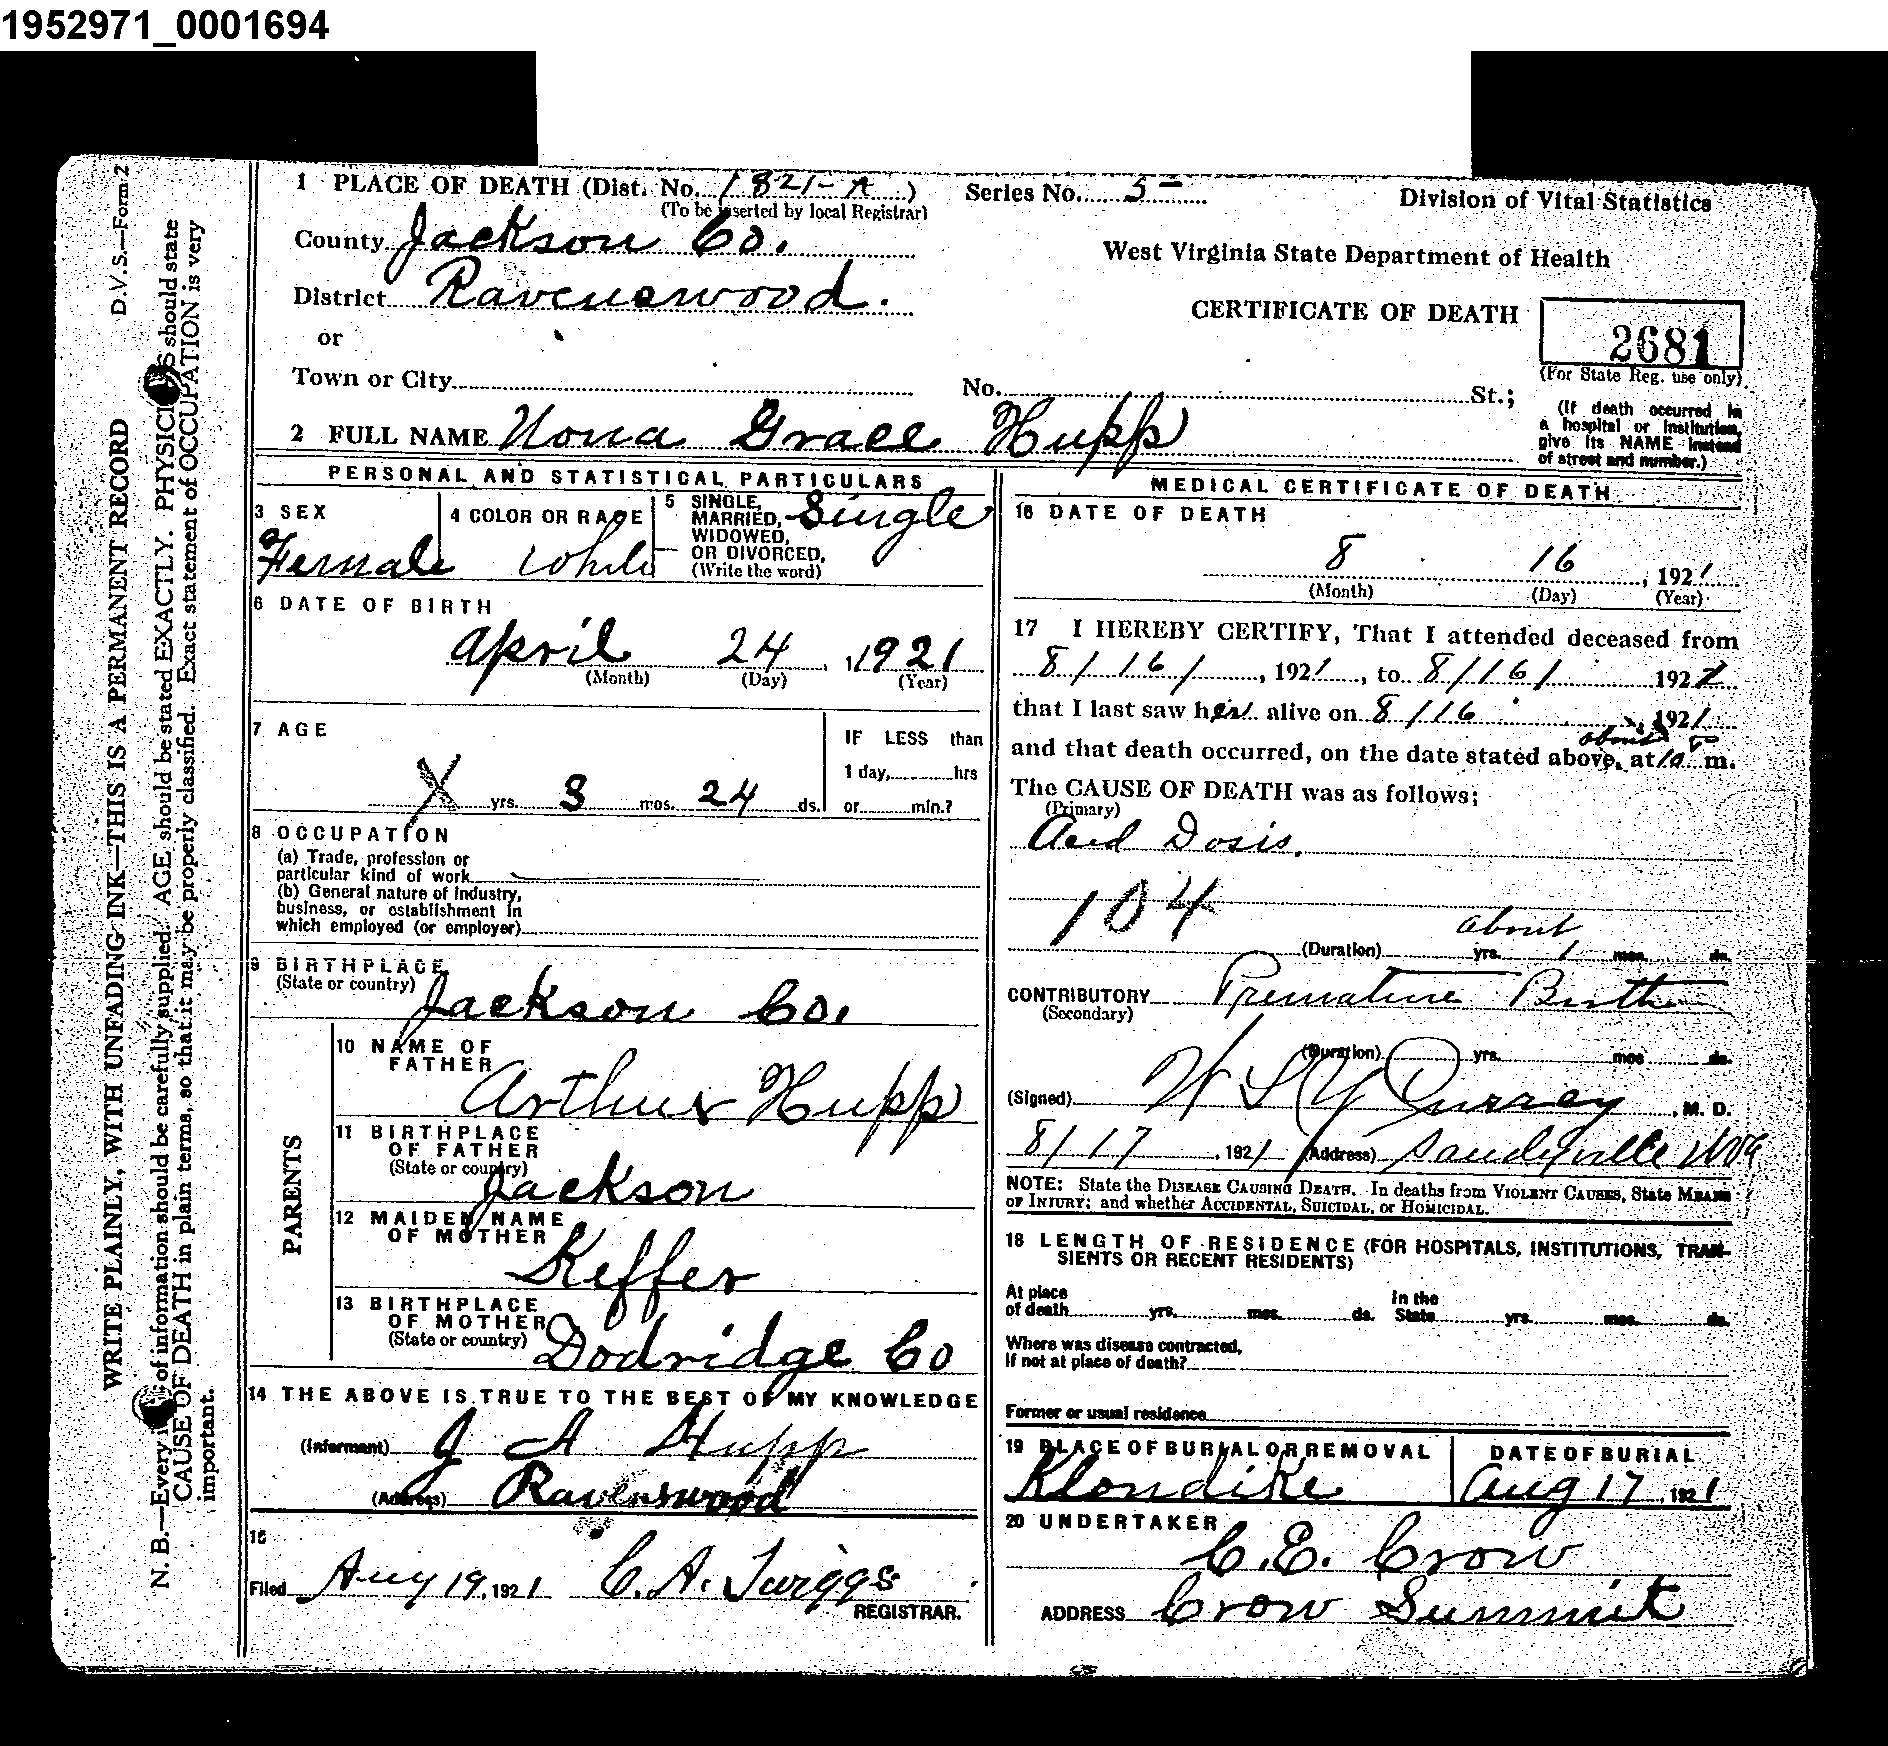 1952971_0001694
D.V.S.—Form 2
WRITE PLAINLY, WITH UNFADING INK—THIS IS A PERMANENT RECORD
N. B.—Every of information should be carefully supplied. AGE should be stated EXACTLY. PHYSICI S should state
CAUSE OF DEATH in plain terms, so that it may be properly classified. Exact statement of OCCUPATION is very
important.
1 PLACE OF DEATH (Dist. No. 1821-A ) Series No. 5- Division of Vital Statistics
(To be inserted by local Registrar)
County Jackson Co.
West Virginia State Department of Health
District Ravenswood.
CERTIFICATE OF DEATH
2681
(For State Reg. use only)
or
Town or City No. St.;
(If death occurred in
a hospital or institution,
give its NAME instead
of street and number.)
2 FULL NAME Nona Grace Hupp
PERSONAL AND STATISTICAL PARTICULARS
3 SEX
Female
4 COLOR OR RACE
White
5 SINGLE,
MARRIED,
WIDOWED,
OR DIVORCED,
(Write the word)
Single
6 DATE OF BIRTH
April 24, 1921
(Month) (Day) (Year)
7 AGE
X yrs. 3 mos. 24 ds.
IF LESS than
1 day, hrs
or min.?
8 OCCUPATION
(a) Trade, profession or
particular kind of work
(b) General nature of industry,
business, or establishment in
which employed (or employer)
9 BIRTHPLACE
(State or country)
Jackson Co.
PARENTS
10 NAME OF
FATHER
Arthur Hupp
11 BIRTHPLACE
OF FATHER
(State or country)
Jackson
12 MAIDEN NAME
OF MOTHER
Keffer
13 BIRTHPLACE
OF MOTHER
(State or country)
Dodridge Co
14 THE ABOVE IS TRUE TO THE BEST OF MY KNOWLEDGE
(Informant) J A Hupp
(Address) Ravenswood
15
Filed Aug 19, 1921 C. A. Twiggs
REGISTRAR.
MEDICAL CERTIFICATE OF DEATH
16 DATE OF DEATH
8 16, 1921
(Month) (Day) (Year)
17 I HEREBY CERTIFY, That I attended deceased from
8/16/, 1921, to 8/16/ 1921
that I last saw her alive on 8/16, 1921
about
and that death occurred, on the date stated above, at 10 m.
The CAUSE OF DEATH was as follows:
(Primary)
Acid Dosis.
104
about
(Duration) yrs. 1 mos. ds.
CONTRIBUTORY Premature Birth
(Secondary)
(Duration) yrs. mos ds.
(Signed) M. D.
8/17, 1921 (Address) Sandyville WVa
NOTE: State the DISEASE CAUSING DEATH. In deaths from VIOLENT CAUSES, State MEANS
OF INJURY; and whether ACCIDENTAL, SUICIDAL, or HOMICIDAL.
18 LENGTH OF RESIDENCE (FOR HOSPITALS, INSTITUTIONS, TRAN-
SIENTS OR RECENT RESIDENTS)
At place
of death yrs. mos. ds. In the
State yrs. mos. ds.
Where was disease contracted,
If not at place of death?
Former or usual residence
19 PLACE OF BURIAL OR REMOVAL
Klondike
DATE OF BURIAL
Aug 17, 1921
20 UNDERTAKER
C.E. Crow
ADDRESS Crow Summit